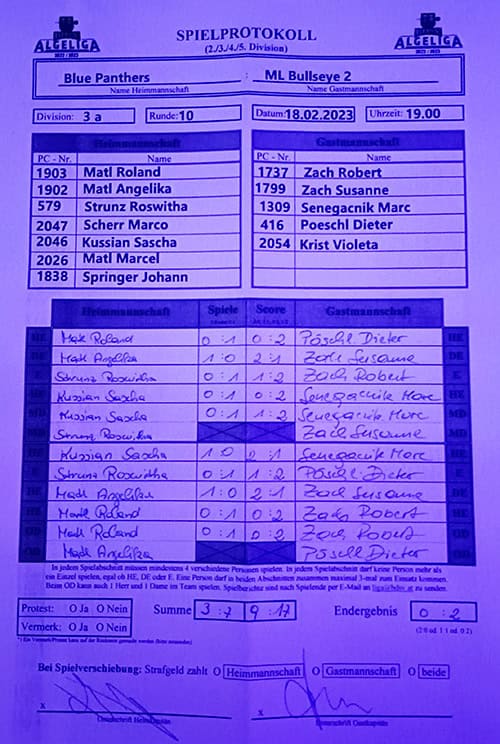 ALGELIGA
SPIELPROTOKOLL
(2./3./4./5. Division)
ALGELIGA
Blue Panthers : ML Bullseye 2
Name Heimmannschaft Name Gastmannschaft
Division: 3 a Runde: 10 Datum: 18.02.2023 Uhrzeit: 19.00
Heimmannschaft Gastmannschaft
PC - Nr. Name PC - Nr. Name
1903 Matl Roland 1737 Zach Robert
1902 Matl Angelika 1799 Zach Susanne
579 Strunz Roswitha 1309 Senegacnik Marc
2047 Scherr Marco 416 Poeschl Dieter
2046 Kussian Sascha 2054 Krist Violeta
2026 Matl Marcel
1838 Springer Johann
Heimmannschaft Spiele Score Gastmannschaft
HE Matl Roland 0 : 1 0 : 2 Pöschl Dieter HE
DE Matl Angelika 1 : 0 2 : 1 Zach Susanne DE
E Strunz Roswitha 0 : 1 1 : 2 Zach Robert E
HE Kussian Sascha 0 : 1 0 : 2 Senegacnik Marc HE
MD Kussian Sascha 0 : 1 1 : 2 Senegacnik Marc MD
MD Strunz Roswitha Zach Susanne MD
HE Kussian Sascha 1 : 0 2 : 1 Senegacnik Marc HE
E Strunz Roswitha 0 : 1 1 : 2 Pöschl Dieter E
DE Matl Angelika 1 : 0 2 : 1 Zach Susanne DE
HE Matl Roland 0 : 1 0 : 2 Zach Robert HE
OD Matl Roland 0 : 1 0 : 2 Zach Robert OD
OD Matl Angelika Pöschl Dieter OD
In jedem Spielabschnitt müssen mindestens 4 verschiedene Personen spielen. In jedem Spielabschnitt darf keine Person mehr als
ein Einzel spielen, egal ob HE, DE oder E. Eine Person darf in beiden Abschnitten zusammen maximal 3-mal zum Einsatz kommen.
Beim OD kann auch 1 Herr und 1 Dame im Team spielen. Spielberichte sind nach Spielende per E-Mail an zu senden.
Protest: O Ja O Nein Summe 3 : 7 9 : 17 Endergebnis 0 : 2
Vermerk: O Ja O Nein (2:0 od. 1:1 od. 0:2)
Bei Spielverschiebung: Strafgeld zahlt O Heimmannschaft O Gastmannschaft O beide
x x
Unterschrift Heimkapitän Unterschrift Gastkapitän